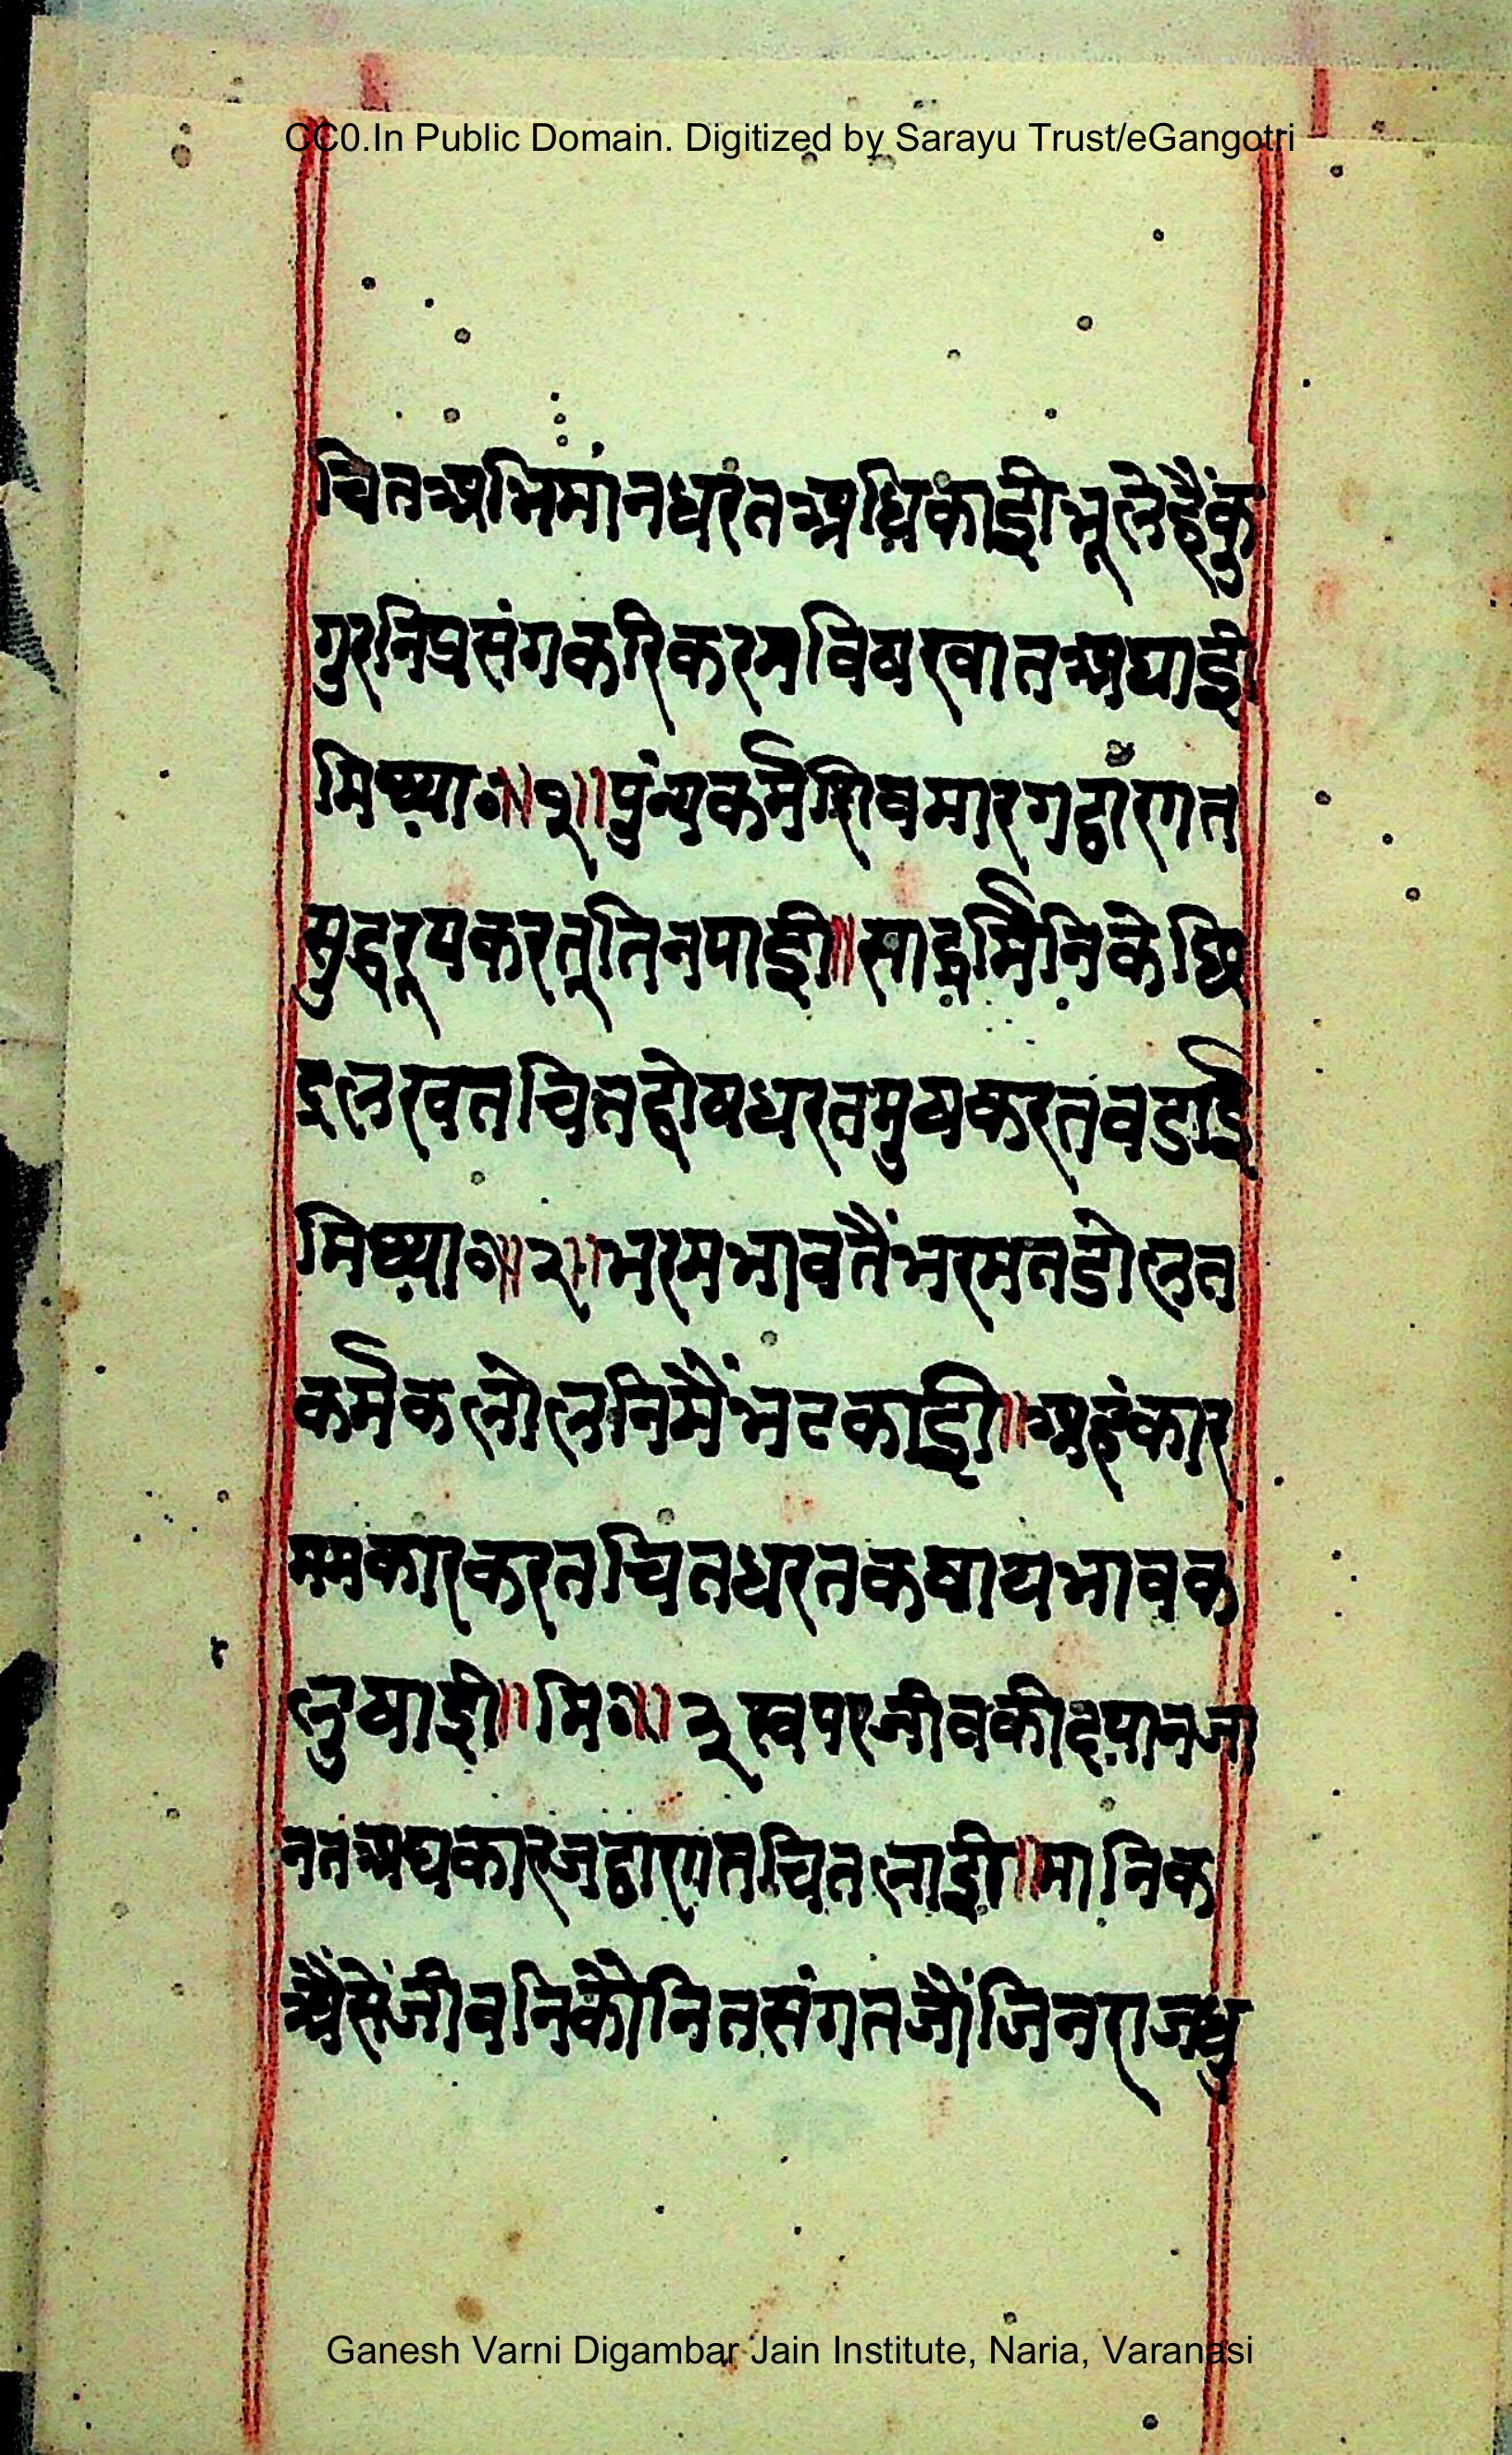 CC0.In Public Domain. Digitized by Sarayu Trust/eGangotri
चितअभिमांनधरंतअधिकाईभूलेहैंकु
गुरनिप्रसंगकरिकरमविषरवातअघाई
मिथ्या०॥१॥पुंन्यकर्मशिवमारगद्वांरगत
सुद्धरूपकरतूतिनपाई॥साद्धर्मिनिकेछि
द्रलरवतचितद्वोषधरतमुषकरतवडाई
मिथ्या०॥२॥भरमभावतैंभरमतडोलत
कर्मकलोलनिमैंभटकाई॥अहंकार
ममकारकरतचितधरतकषायभावक
लुषाई॥मि०॥३स्वपरजीवकीदयानजा
नतअघकारजद्वारगतचितलाई॥मानिक
अैसेंजीवनिकौनितसंगतजौंजिनराजधु
Ganesh Varni Digambar Jain Institute, Naria, Varanasi